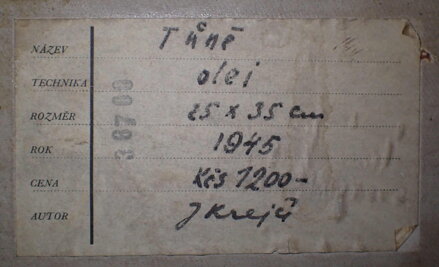 NÁZEV Tůně
TECHNIKA olej
ROZMĚR 25 x 35 cm
ROK 1945
CENA Kčs 1200-
AUTOR J Krejčí